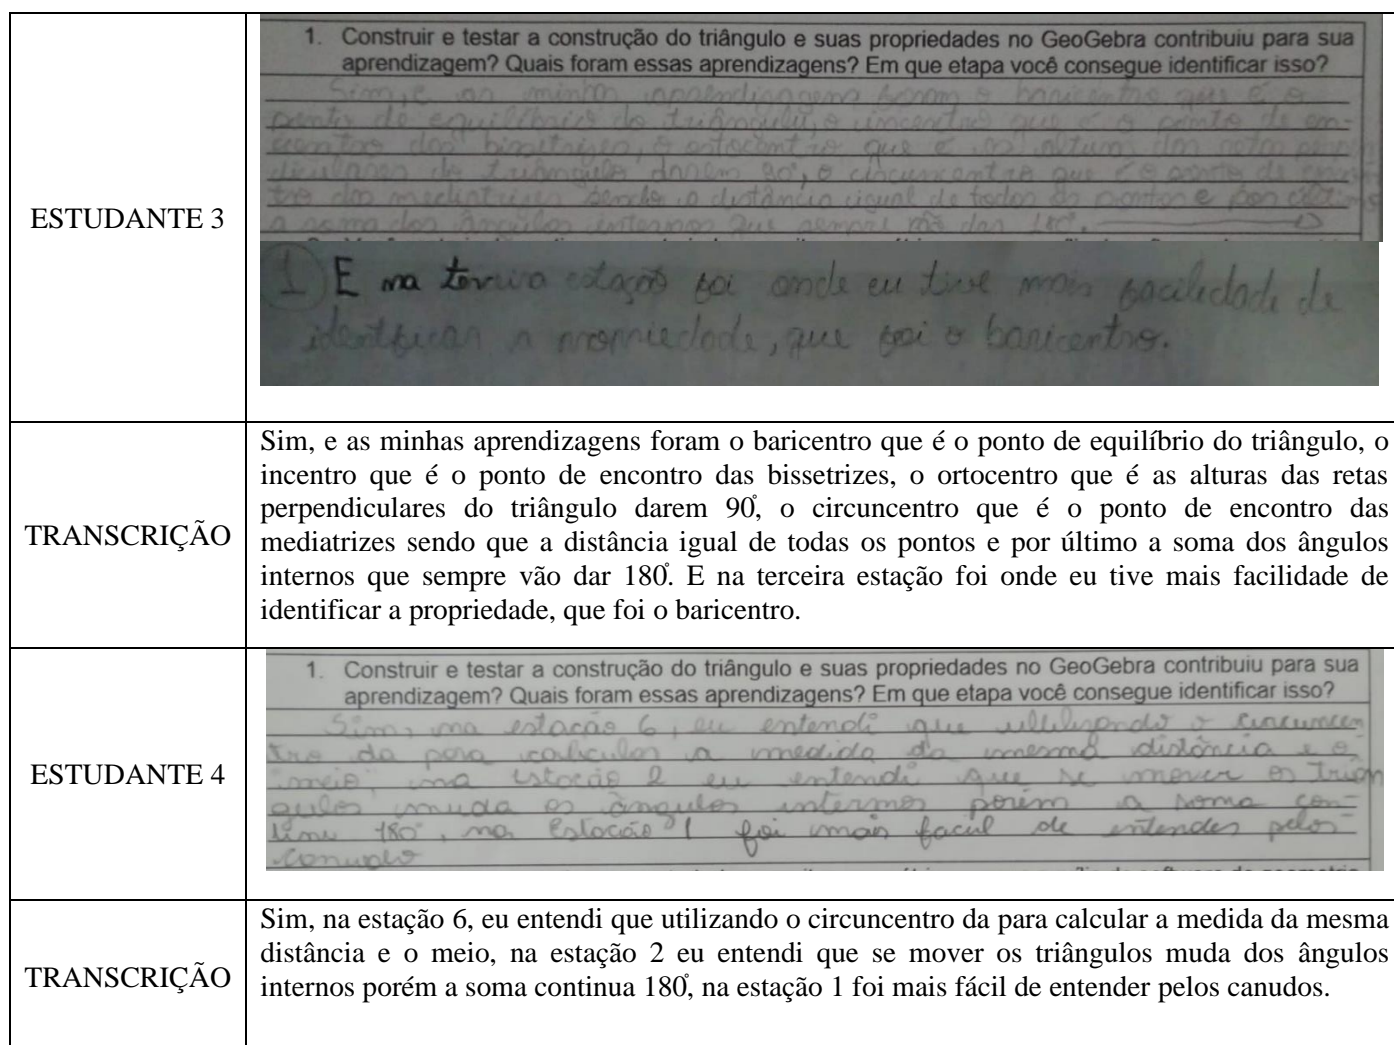 ESTUDANTE 3
1. Construir e testar a construção do triângulo e suas propriedades no GeoGebra contribuiu para sua
aprendizagem? Quais foram essas aprendizagens? Em que etapa você consegue identificar isso?
Sim, e as minha aprendizagens foram o baricentro que é o
ponto de equilíbrio do triângulu, o incentro que é o ponto de en-
contro das bissetrizes, o ortocentro que é as alturas das retas perpen
diculares do triângulo darem 90°, o circuncentro que é o ponto de encon
tro das mediatrizes sendo a distância igual de todos os pontos e por último
a soma dos ângulos internos que sempre vão dar 180°.
1) E na terceira estação foi onde eu tive mais facilidade de
identificar a propriedade, que foi o baricentro.
TRANSCRIÇÃO
Sim, e as minhas aprendizagens foram o baricentro que é o ponto de equilíbrio do triângulo, o
incentro que é o ponto de encontro das bissetrizes, o ortocentro que é as alturas das retas
perpendiculares do triângulo darem 90°, o circuncentro que é o ponto de encontro das
mediatrizes sendo que a distância igual de todas os pontos e por último a soma dos ângulos
internos que sempre vão dar 180°. E na terceira estação foi onde eu tive mais facilidade de
identificar a propriedade, que foi o baricentro.
ESTUDANTE 4
1. Construir e testar a construção do triângulo e suas propriedades no GeoGebra contribuiu para sua
aprendizagem? Quais foram essas aprendizagens? Em que etapa você consegue identificar isso?
Sim, na estação 6, eu entendi que utilizando o circuncen
tro da para calcular a medida da mesma distância e o
meio, na estação 2 eu entendi que se mover os triân
gulos muda os ângulos internos porém a soma con-
tinu 180°, na Estação 1 foi mais facil de entender pelos
canudo
TRANSCRIÇÃO
Sim, na estação 6, eu entendi que utilizando o circuncentro da para calcular a medida da mesma
distância e o meio, na estação 2 eu entendi que se mover os triângulos muda dos ângulos
internos porém a soma continua 180°, na estação 1 foi mais fácil de entender pelos canudos.